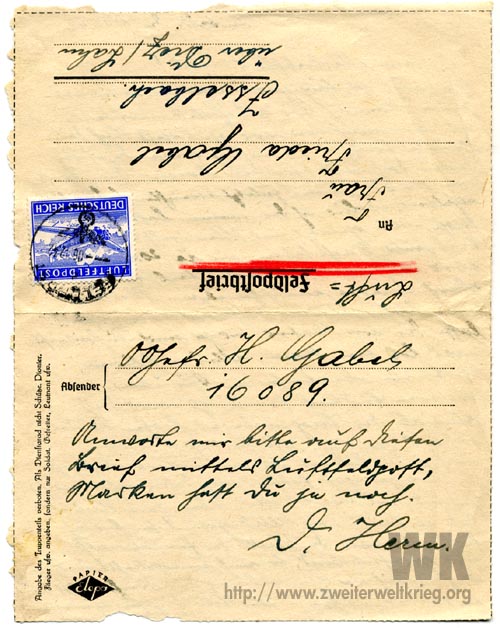 Luft=
Feldpostbrief
An
Frau
Frieda Gabel
Isselbach.
über Diez / Lahn
LUFTFELDPOST
DEUTSCHES REICH
Absender
OGefr H. Gabel
16089.
Anworte mir bitte auf diesen
Brief mittels Luftfeldpost,
Marken hast Du ja noch.
D. Herm.
Angabe des Truppenteils verboten. Als Dienstgrad nicht Schütze, Pionier,
Flieger usw. angeben, sondern nur Soldat, Gefreiter, Leutnant usw.
PAPIER
Elepa
WK
http://www.zweiterweltkrieg.org